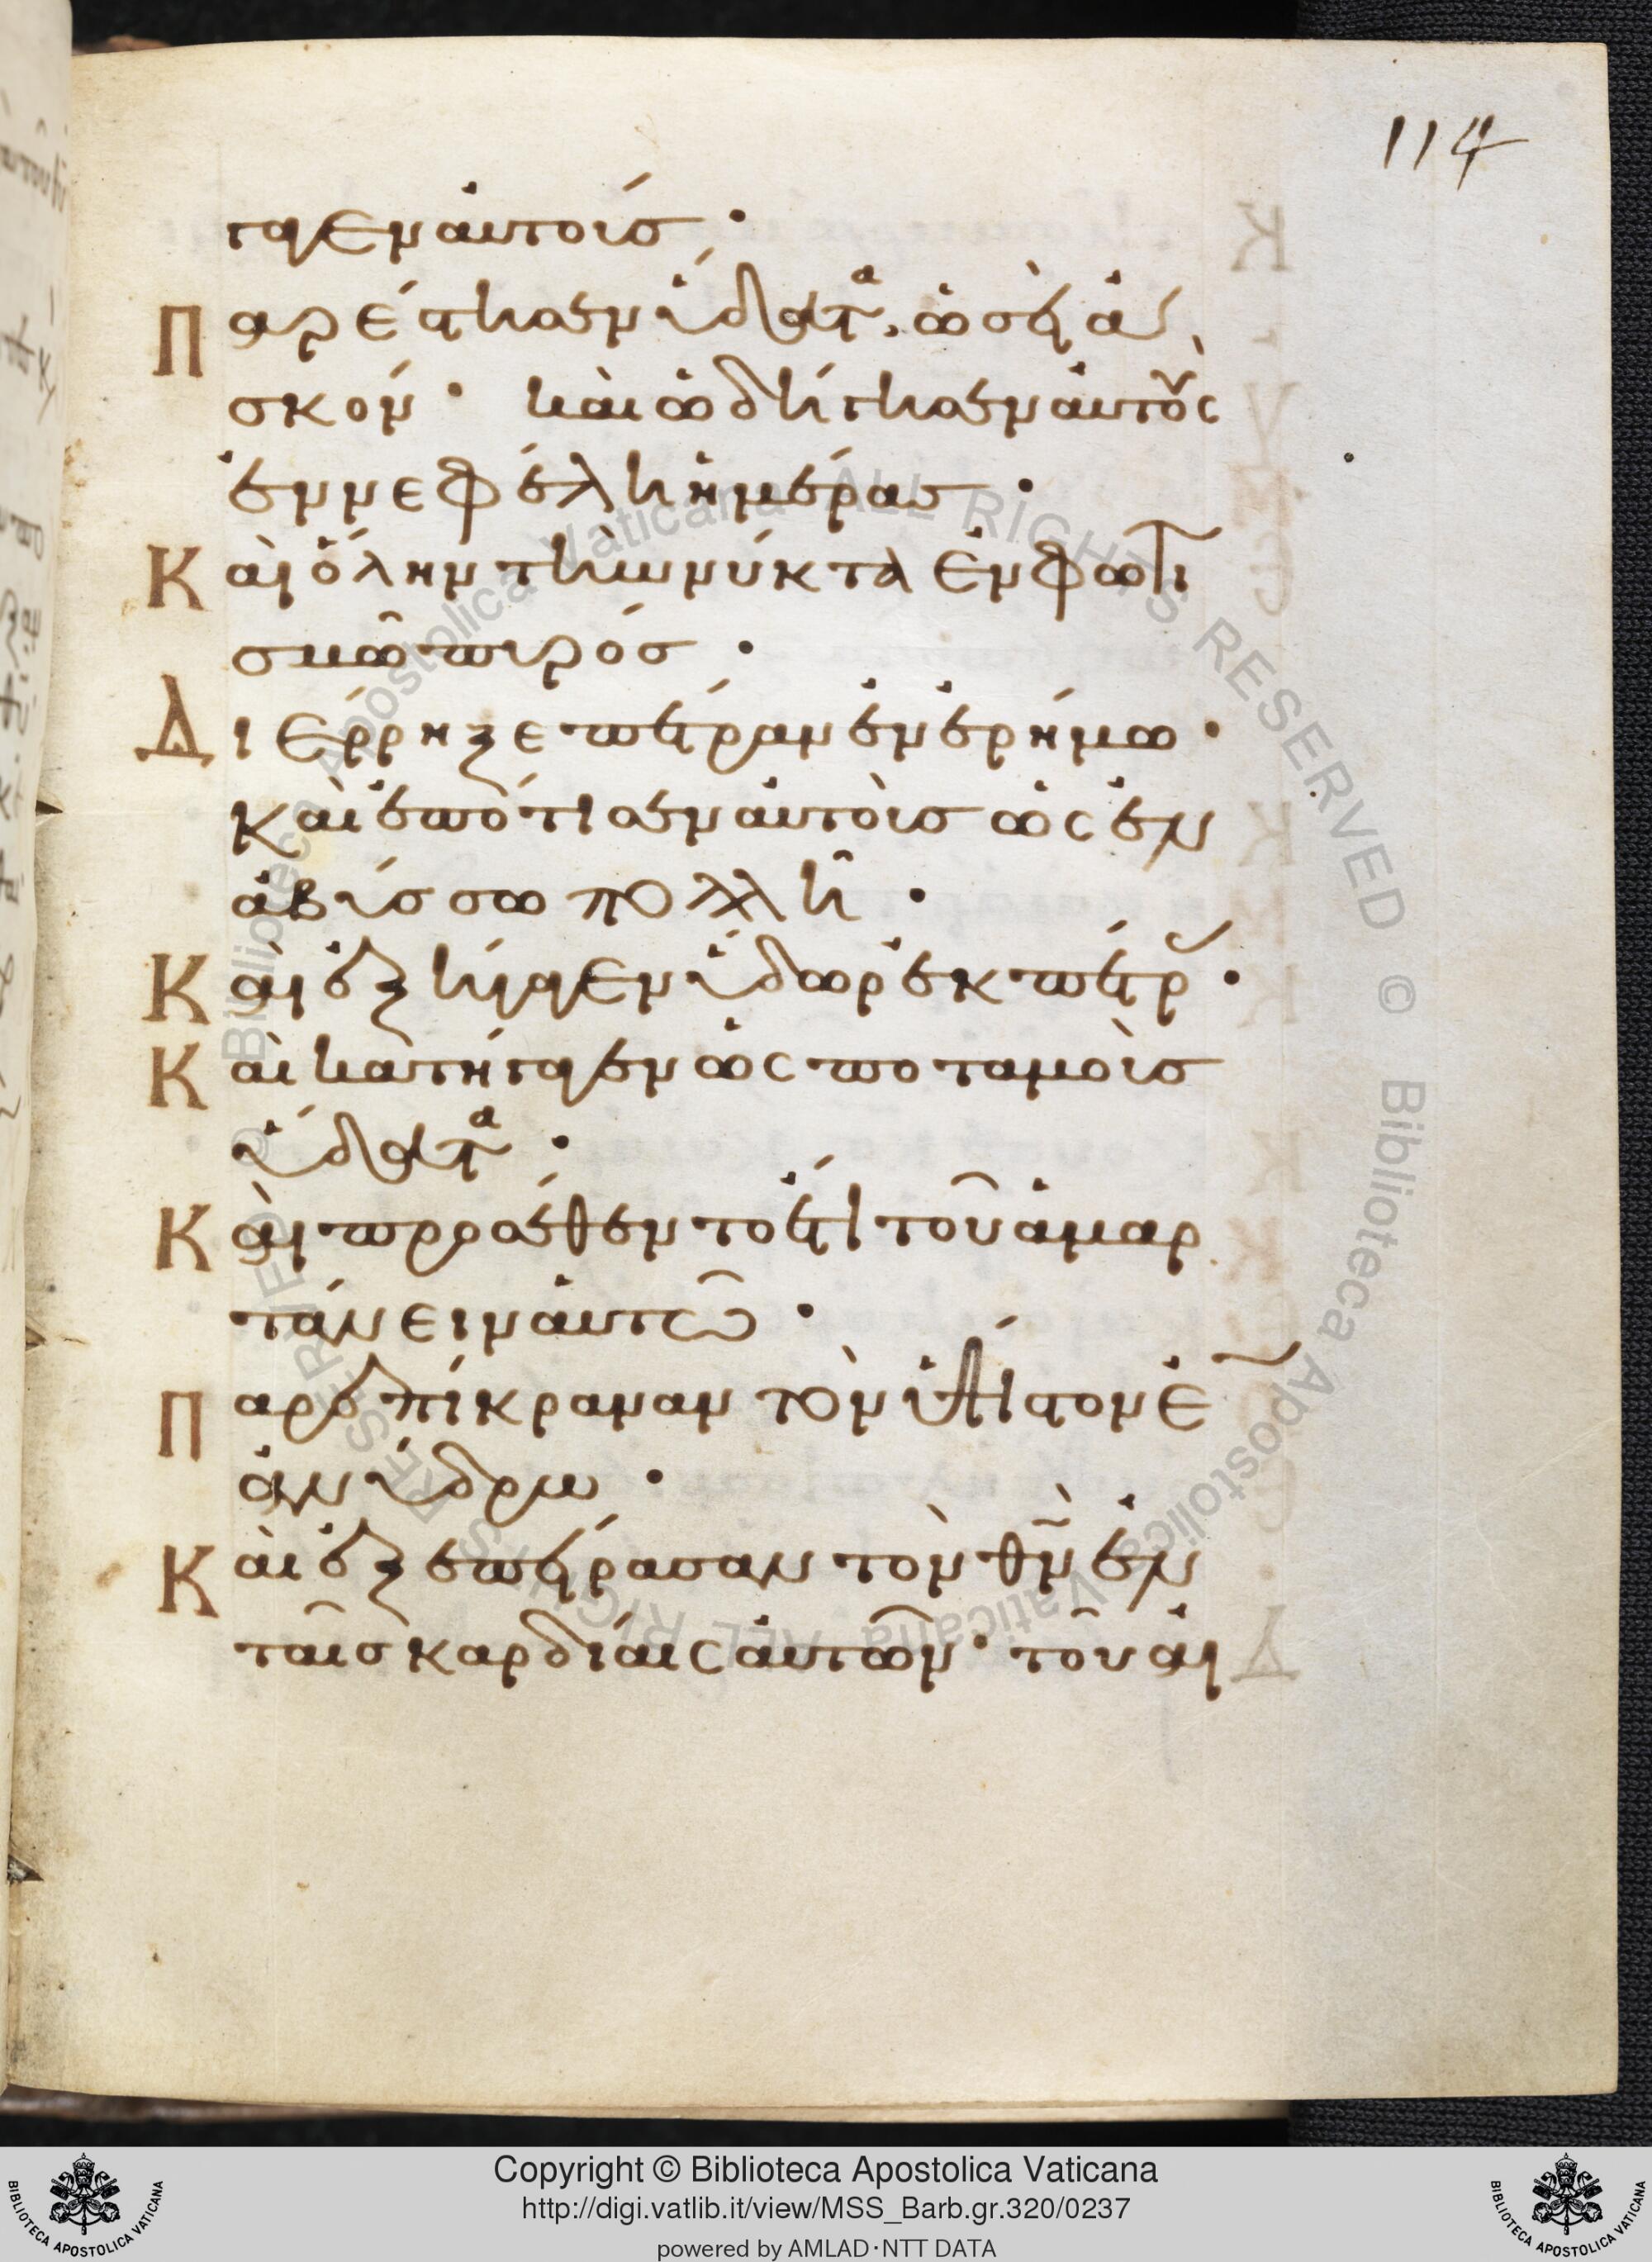 114
γαγεν αυτοίσ·
Παρέστησεν ὕδατα, ὡσεὶ ἀ
σκον· καὶ ὡδήγησεν αυτοὺς
ἐν νεφέλη ἡμέρασ·
Καὶ ὅλην τὴν νύκτα ἐν φωτι
σμῶ πυρόσ·
Διέρρηξε πέτραν ἐν ἐρήμω·
καὶ ἐπότισεν αυτοὺσ ὡς ἐν
ἀβύσσω πολλῆ·
Καὶ ἐξήγαγεν ὕδωρ ἐκ πέτρ·
Καὶ κατήγαγεν ὡς ποταμοὺσ
ὕδατα·
Καὶ προσέθεντο ἔτι τοῦ ἁμαρ
τάνειν αυτῶ·
Παρεπίκραναν τὸν ὕψιστον ἐ
ἀνύδρω·
Καὶ ἐξεπείρασαν τὸν θν ἐν
ταῖσ καρδίαις αυτῶν· τοῦ αι
Copyright © Biblioteca Apostolica Vaticana
http://digi.vatlib.it/view/MSS_Barb.gr.320/0237
powered by AMLAD·NTT DATA
BIBLIOTECA APOSTOLICA VATICANA
BIBLIOTECA APOSTOLICA VATICANA
© Biblioteca Apostolica Vaticana ALL RIGHTS RESERVED © Biblioteca Apostolica Vaticana ALL RIGHTS RESERVED